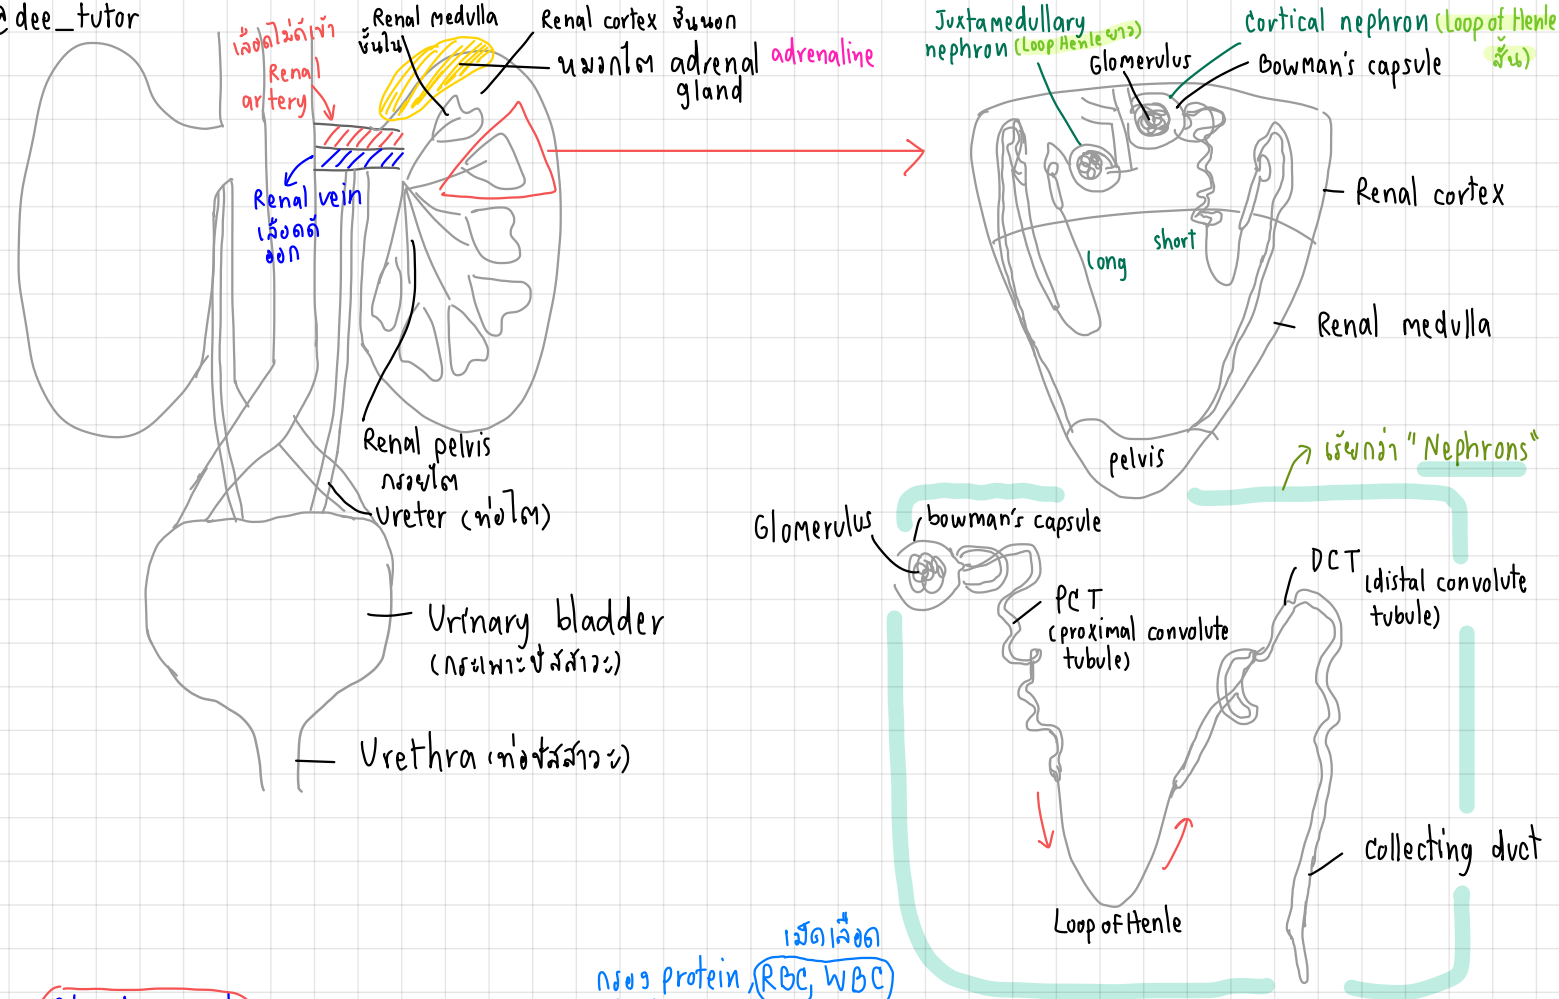 @dee_tutor
เลือดไม่ดีเข้า
Renal
artery
Renal vein
เลือดดี
ออก
Renal medulla
ชั้นใน
Renal cortex ชั้นนอก
หมวกไต adrenal
gland
adrenaline
Renal pelvis
กรวยไต
Ureter (ท่อไต)
Urinary bladder
(กระเพาะปัสสาวะ)
Urethra (ท่อปัสสาวะ)
Juxtamedullary
nephron (Loop Henle ยาว)
Glomerulus
Cortical nephron (Loop of Henle
สั้น)
Bowman's capsule
Renal cortex
short
long
Renal medulla
pelvis
เรียกว่า "Nephrons"
Glomerulus
bowman's capsule
PCT
(proximal convolute
tubule)
DCT
(distal convolute
tubule)
Collecting duct
Loop of Henle
เม็ดเลือด
กรอง protein, RBC, WBC